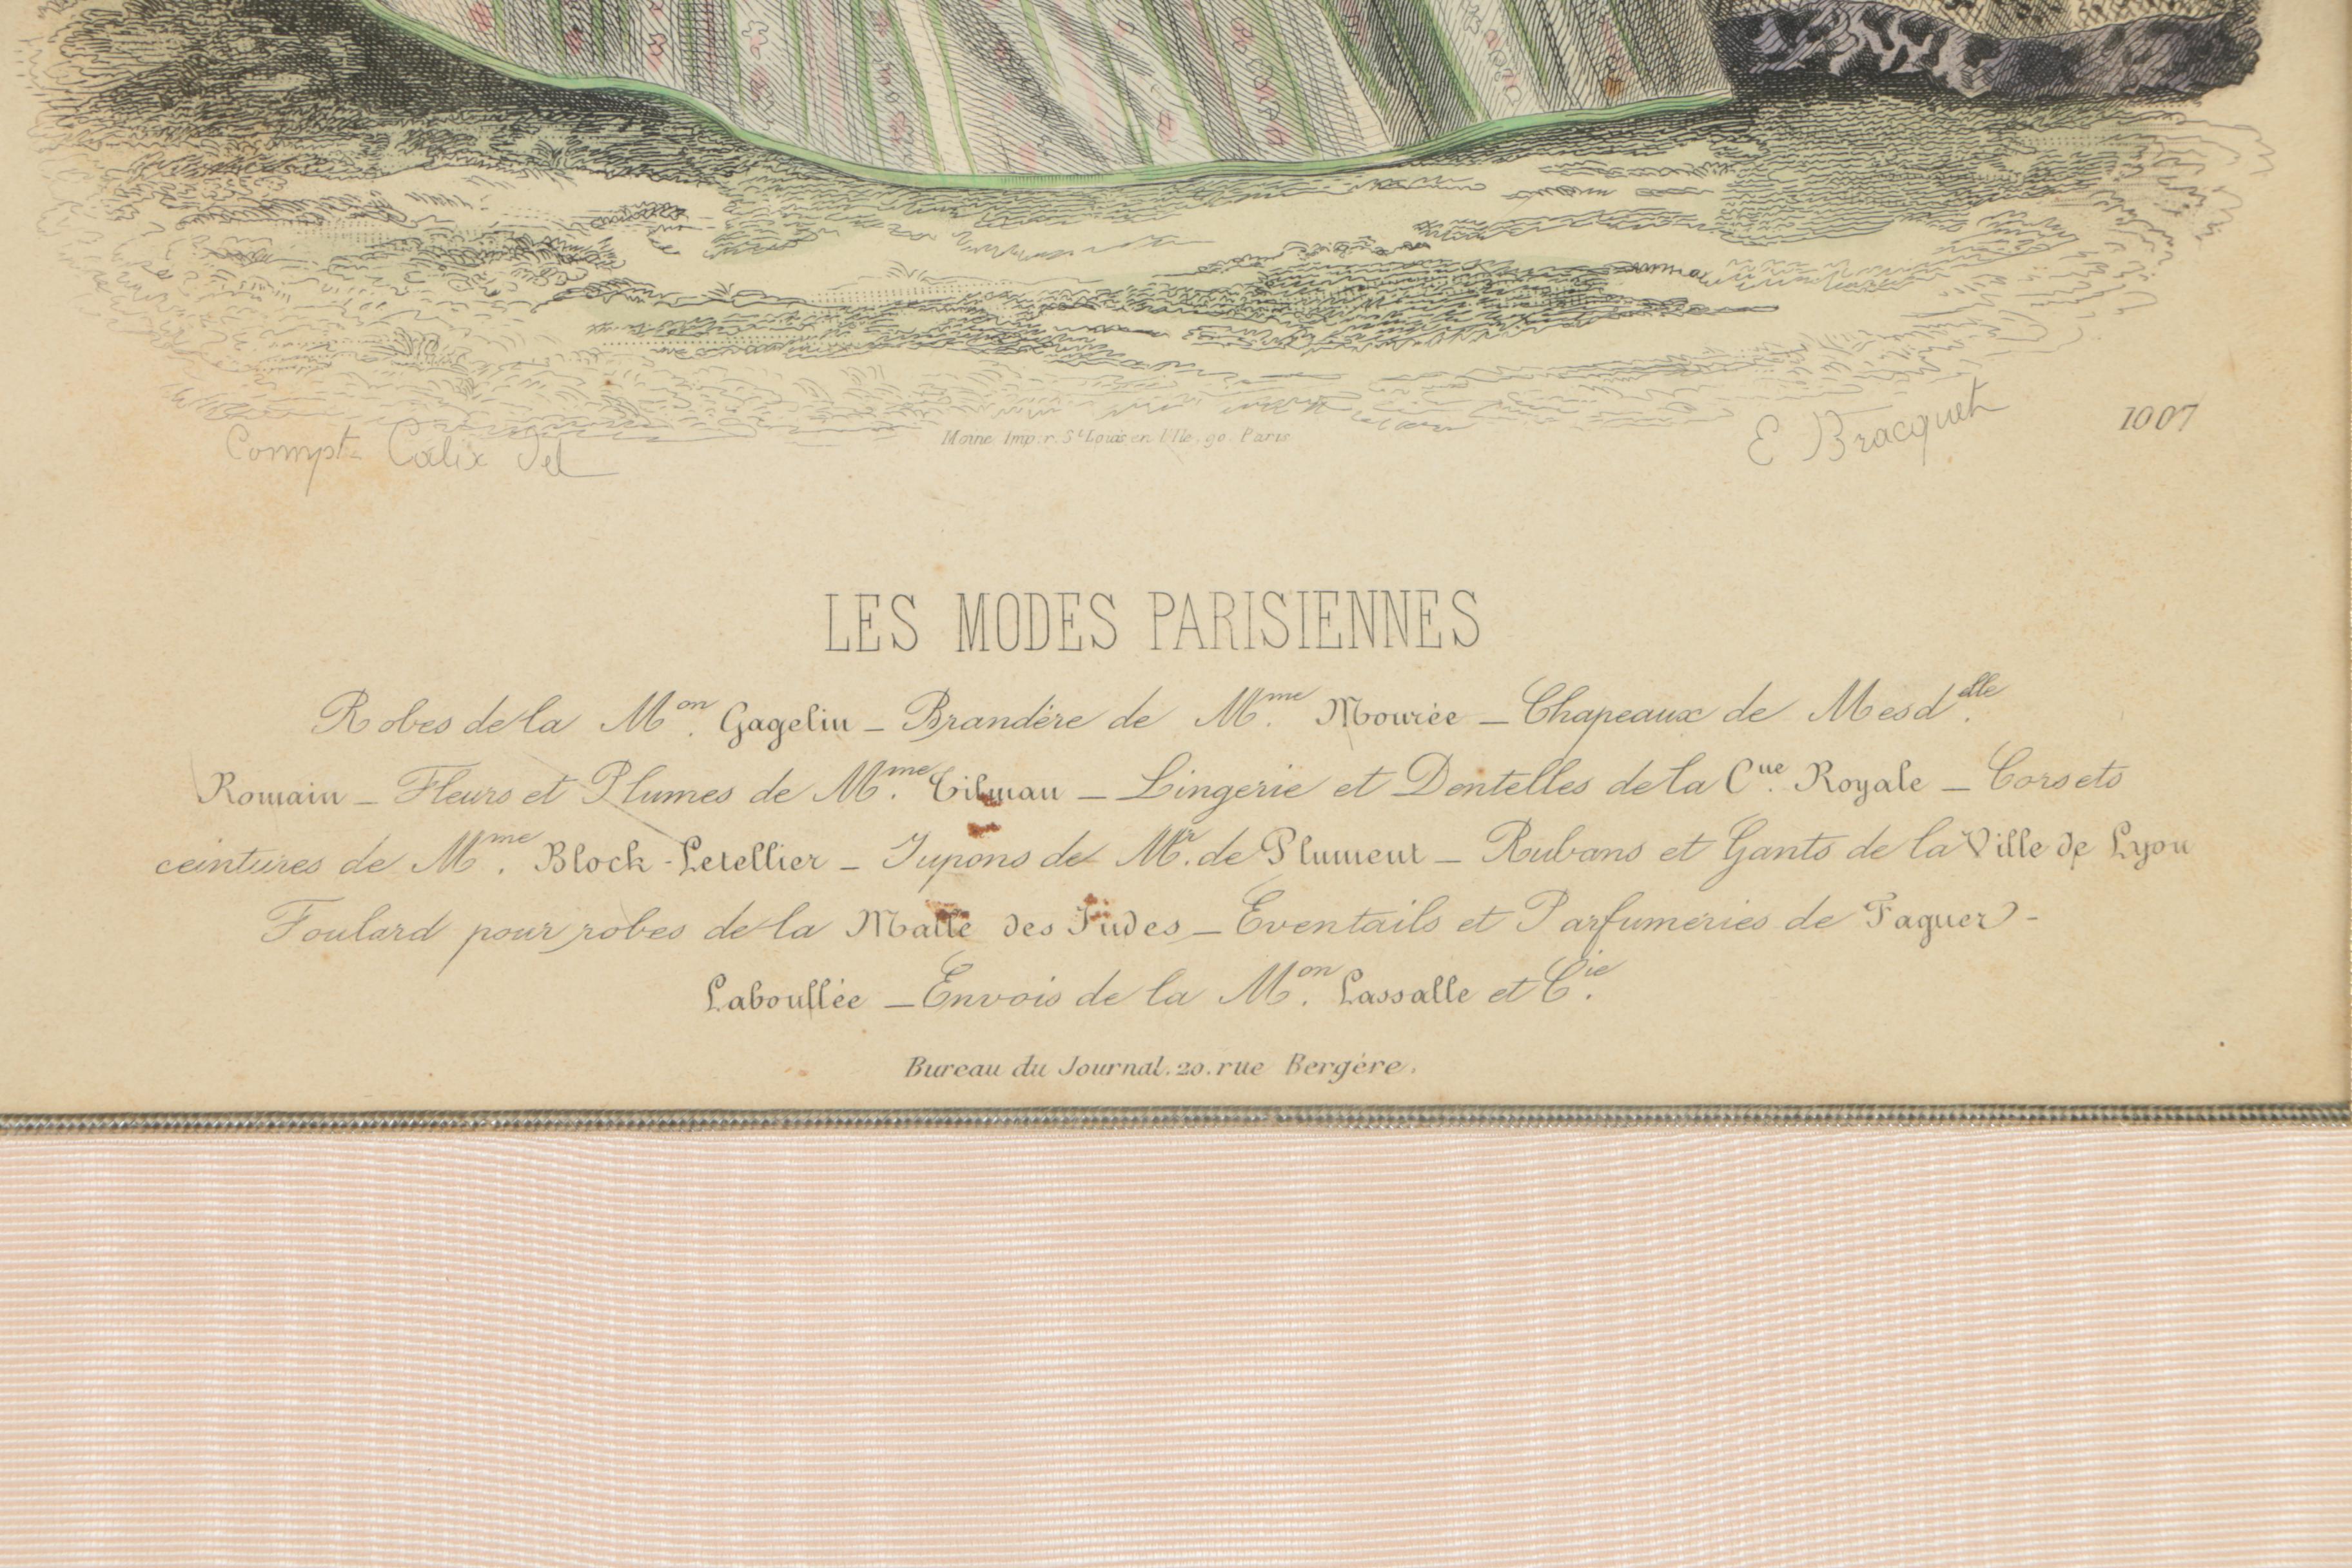 Compte Calix del
Moine Imp. r. St Louis en l'Ile. 90. Paris
E Bracquet
1007
LES MODES PARISIENNES
Robes de la Mon. Gagelin _ Brandére de Mme. Mourée _ Chapeaux de Mesdelle.
Romain _ Fleurs et Plumes de Mme. Tilman _ Lingerie et Dentelles de la Cue. Royale _ Corsets
ceintures de Mme. Block-Letellier _ Jupons de Mr. de Plument _ Rubans et Gants de la Ville de Lyon
Foulard pour robes de la Malle des Indes _ Eventails et Parfumeries de Faguer -
Laboullée _ Envois de la Mon. Lassalle et Cie.
Bureau du Journal. 20. rue Bergère.